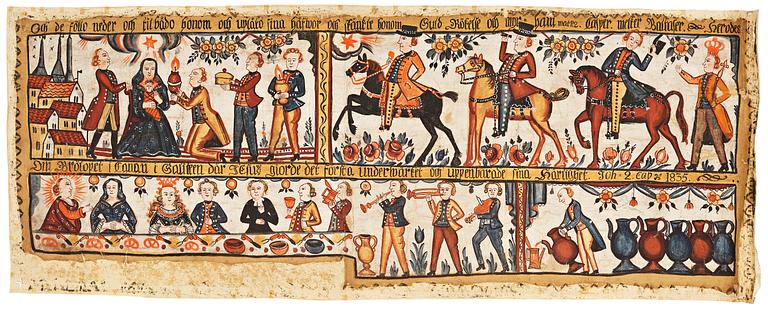 Och de follo neder och tilbådo honom och uplåto sina håfwor och skänkte honom Guld, Rökelse och myrrham mattz: Casper, melker Baltasar. Herodes
Om Brölopet i Canan i Galileen där Jesus giorde det första underwärket och uppenbarade sina Härlighet. Joh: 2. cap: 1835.